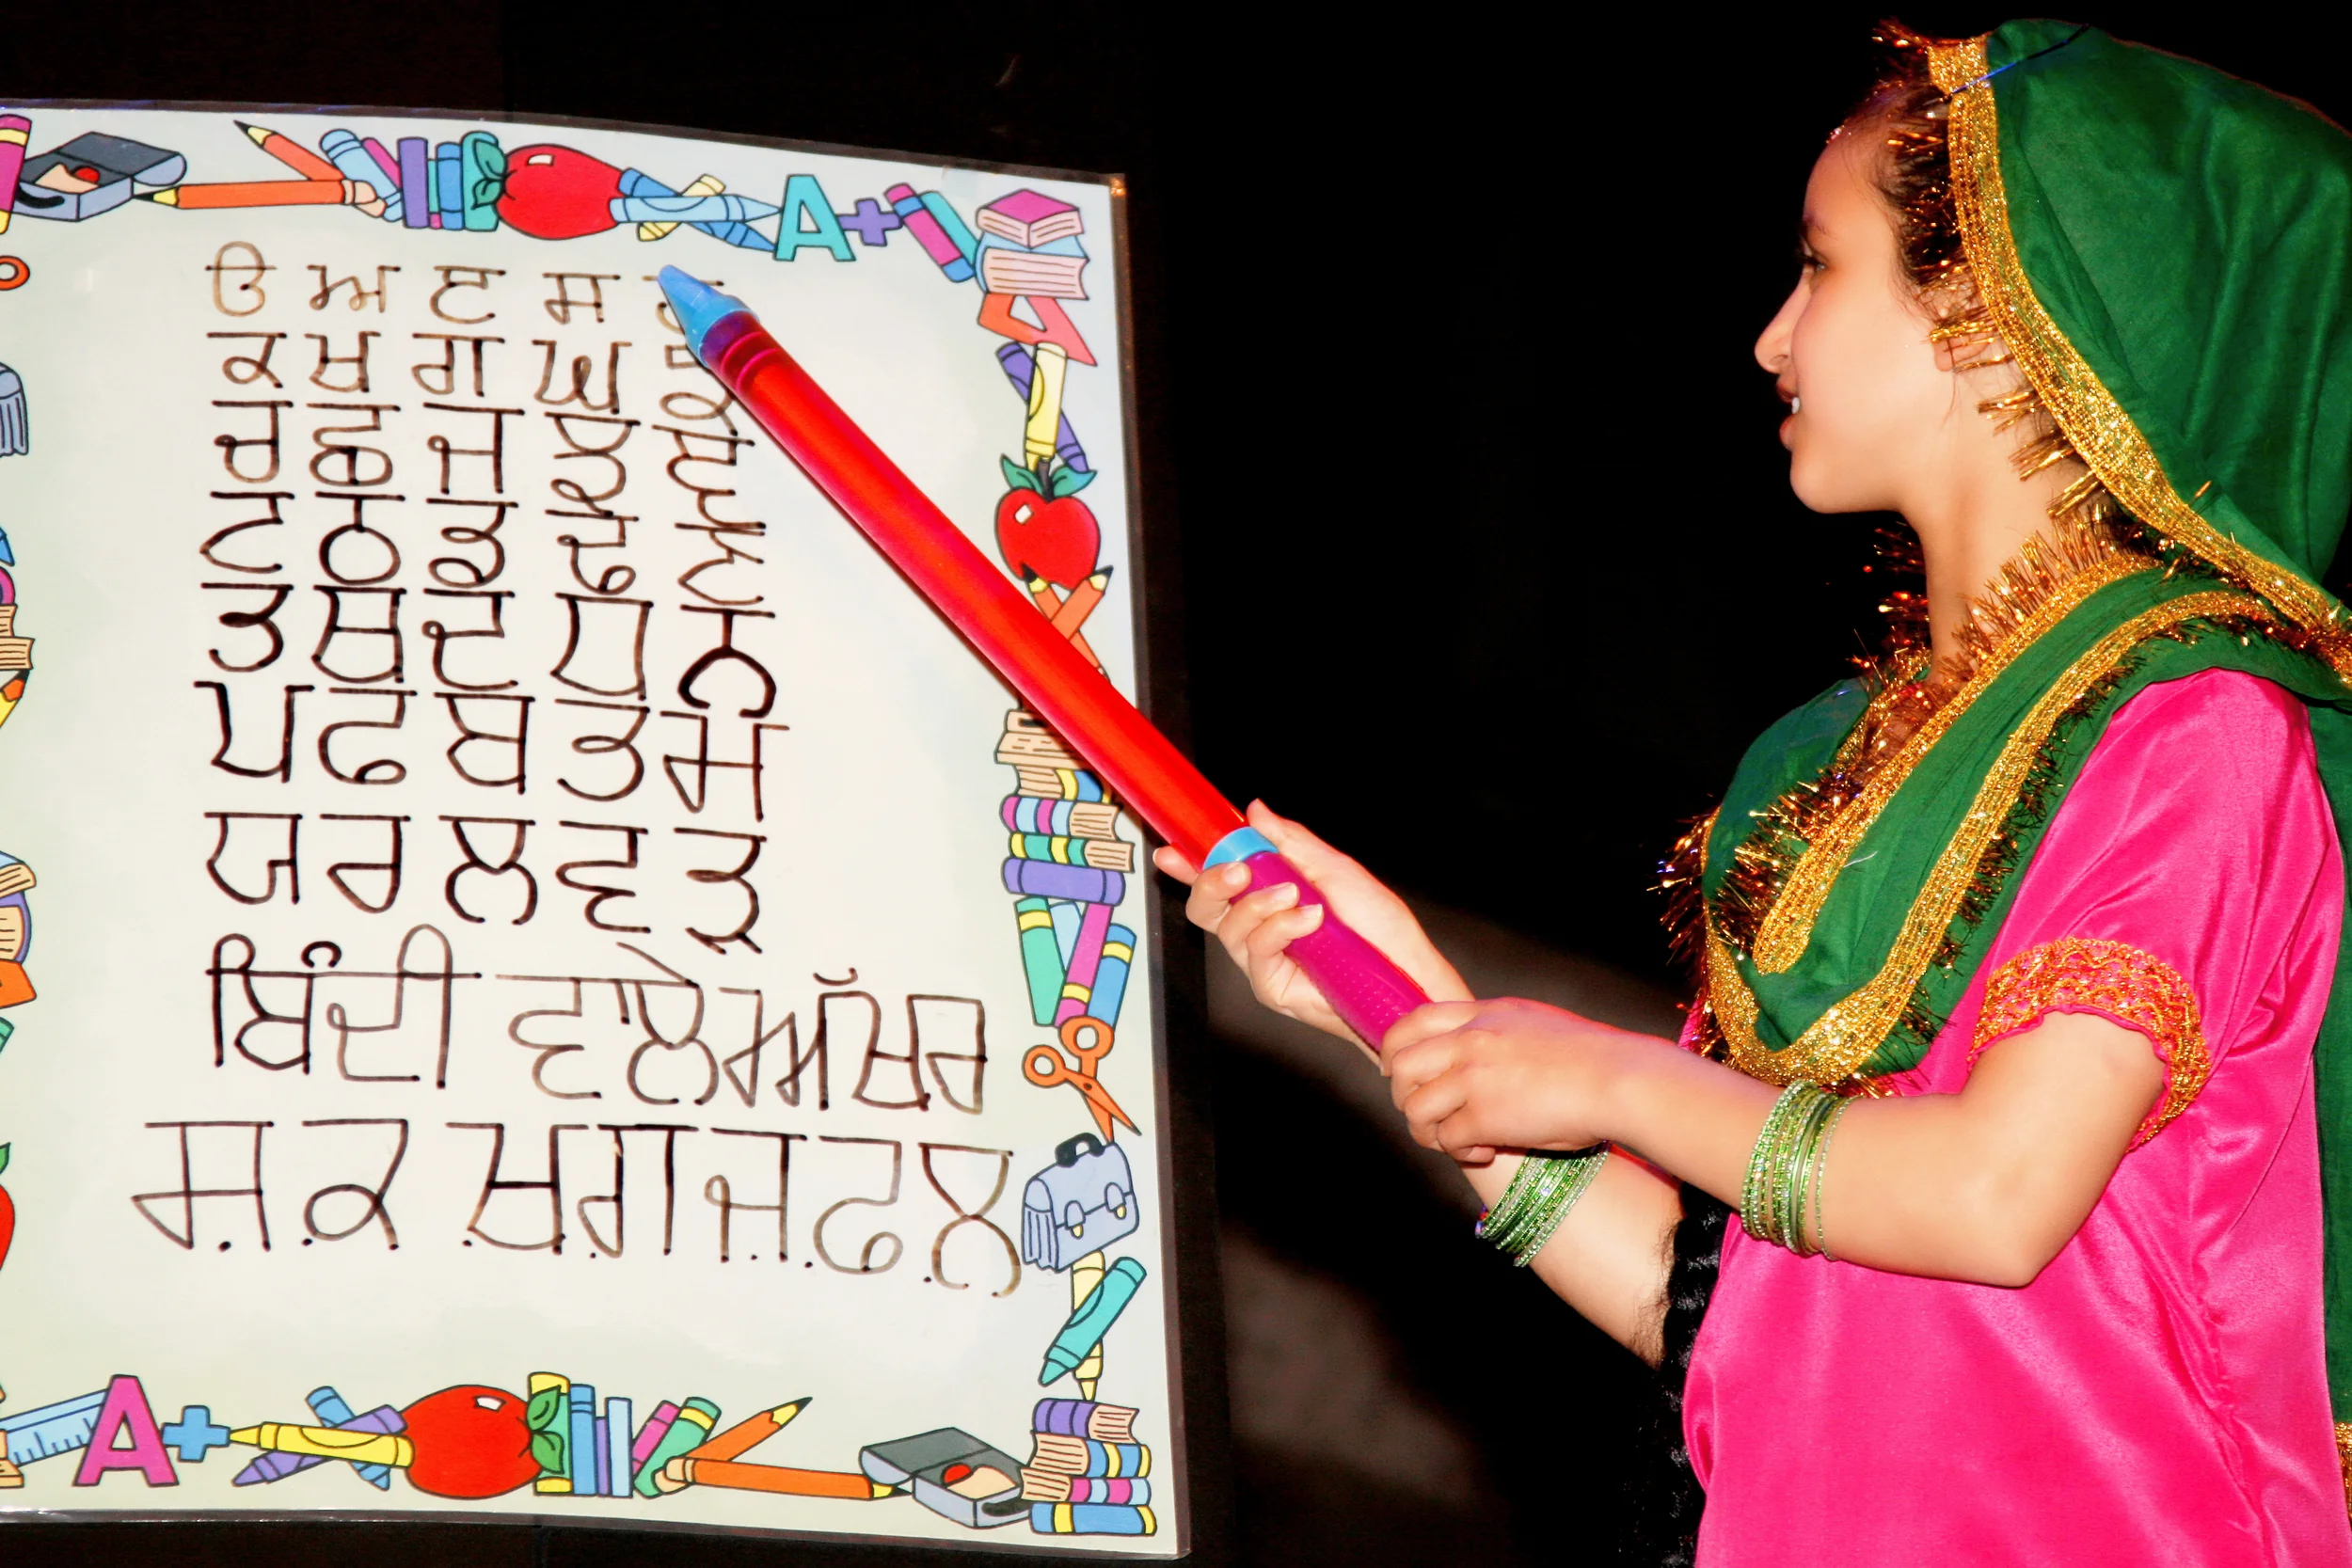 A+
ੳ ਅ ੲ ਸ
ਕ ਖ ਗ ਘ ਙ
ਚ ਛ ਜ ਝ ਞ
ਟ ਠ ਡ ਢ ਣ
ਤ ਥ ਦ ਧ ਨ
ਪ ਫ ਬ ਭ ਮ
ਯ ਰ ਲ ਵ ੜ
ਬਿੰਦੀ ਵਾਲੇ ਅੱਖਰ
ਸ਼ ਕ਼ ਖ਼ ਗ਼ ਜ਼ ਫ਼ ਲ਼
A+